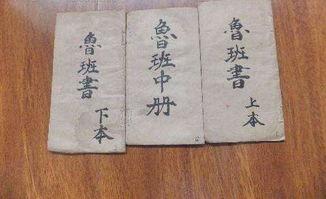 魯班書
上本
魯班中册
魯班書
下本